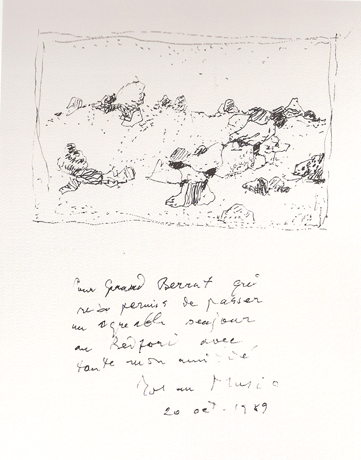 Pour Gérard Berrut qui
permis de passer
un agréable sejour
au Bedford avec
toute mon amitié
Zoran Music
20 oct. 1989